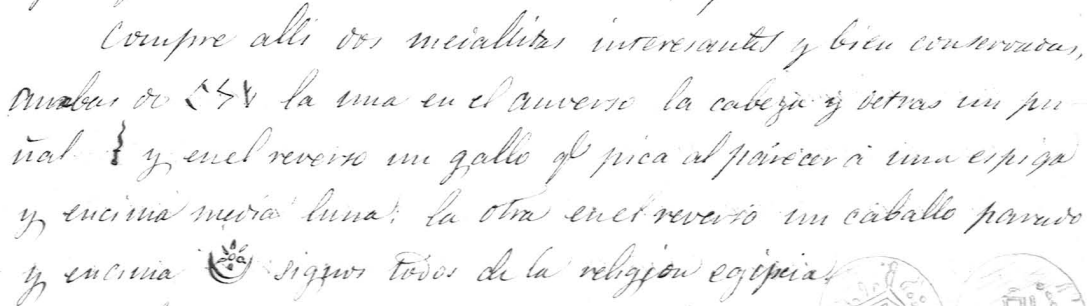 Compre alli dos meiallitas interesantes y bien conservadas,
ambas de la una en el anverso la cabeza y detras un pu-
ñal y en el reverso un gallo q pica al parecer á una espiga
y encima media luna: la otra en el reverso un caballo parado
y encima signos todos de la religion egipcia